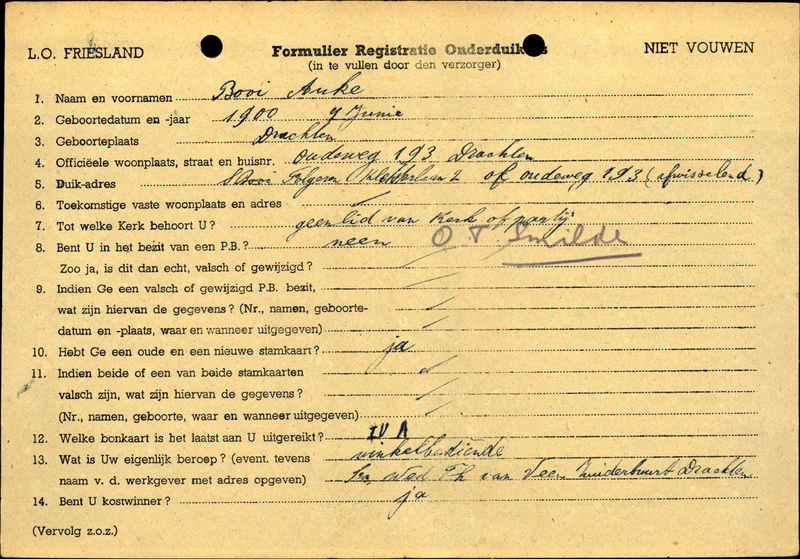 L.O. FRIESLAND
Formulier Registratie Onderduikers
NIET VOUWEN
(in te vullen door den verzorger)
1. Naam en voornamen Booi Anke
2. Geboortedatum en -jaar 1900 7 Junie
3. Geboorteplaats Drachten
4. Officiëele woonplaats, straat en huisnr. Oudeweg 193 Drachten
5. Duik-adres S Booi 2 of oudeweg 193 (afwisselend)
6. Toekomstige vaste woonplaats en adres
7. Tot welke Kerk behoort U? geen lid van Kerk of partij
8. Bent U in het bezit van een P.B.? neen O. T. Smilde
Zoo ja, is dit dan echt, valsch of gewijzigd?
9. Indien Ge een valsch of gewijzigd P.B. bezit,
wat zijn hiervan de gegevens? (Nr., namen, geboorte-
datum en -plaats, waar en wanneer uitgegeven)
10. Hebt Ge een oude en een nieuwe stamkaart? ja
11. Indien beide of een van beide stamkaarten
valsch zijn, wat zijn hiervan de gegevens?
(Nr., namen, geboorte, waar en wanneer uitgegeven)
12. Welke bonkaart is het laatst aan U uitgereikt? IV A
13. Wat is Uw eigenlijk beroep? (event. tevens winkelbediende
naam v. d. werkgever met adres opgeven) Wed Th van Veen Zuiderbuurt Drachten
14. Bent U kostwinner? ja
(Vervolg z.o.z.)